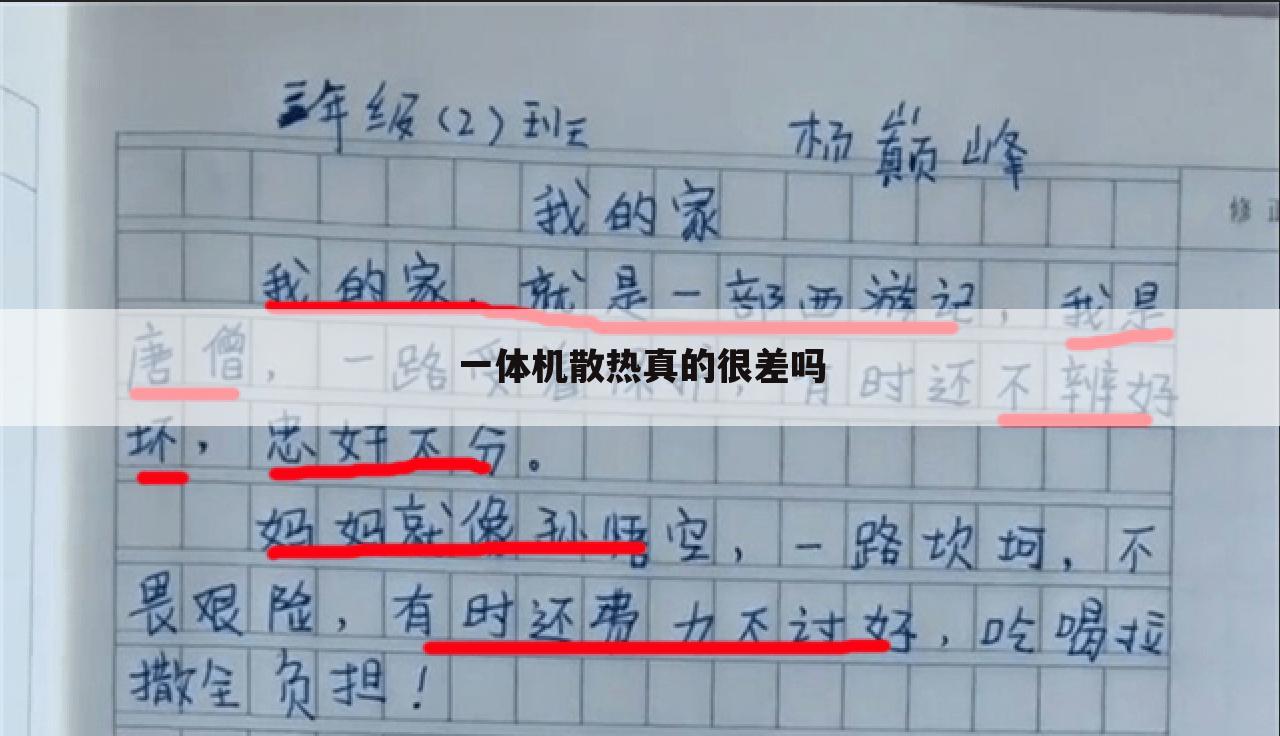 三年级(2)班 杨巅峰
我的家
修正
我的家,就是一部西游记,我是
唐僧,一路受着保护,有时还不辨好
一体机散热真的很差吗
坏,忠奸不分。
妈妈就像孙悟空,一路坎坷,不
畏艰险,有时还费力不讨好,吃喝拉
撒全负担!